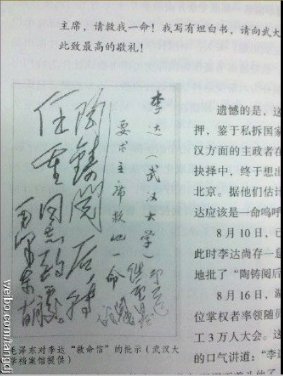 主席，请救我一命！我写有坦白书，请向武大
此致最高的敬礼！
李达（武汉大学）
要求主席救他一命
陶铸阅后转
任重同志
毛泽东
遗憾的是，这
押，鉴于私拆国家
汉方面的主政者在
抉择中，终于想出
北京。据他们估计
达应该是一命呜呼
8月10日，已
此时李达尚存一息
地批了“陶铸阅后
8月16日，湖
位掌权者率领随员
工3万人大会。这
的口气讲道：“李达
毛泽东对李达“救命信”的批示（武汉大
学档案馆提供）